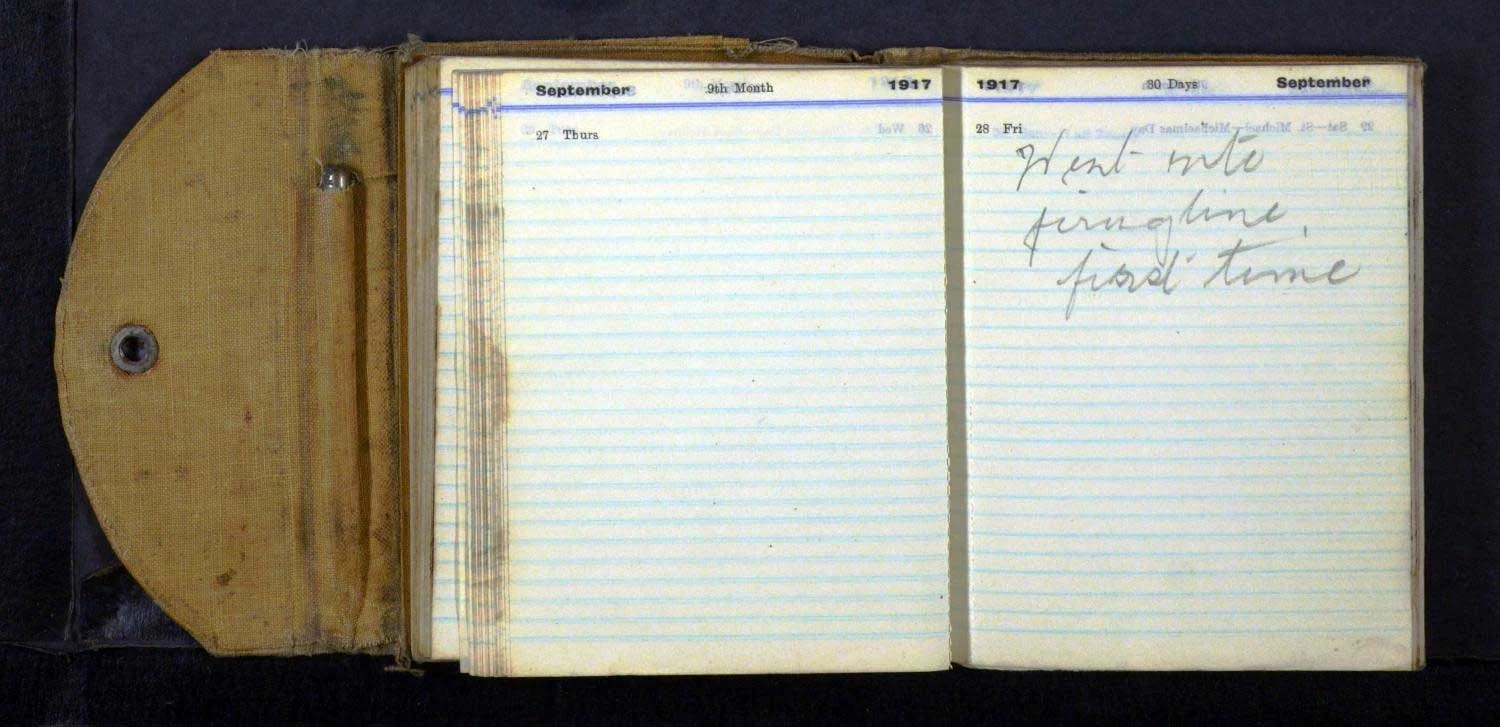 September 9th Month 1917
27 Thurs
1917 30 Days September
28 Fri
Went into
firing line,
first time